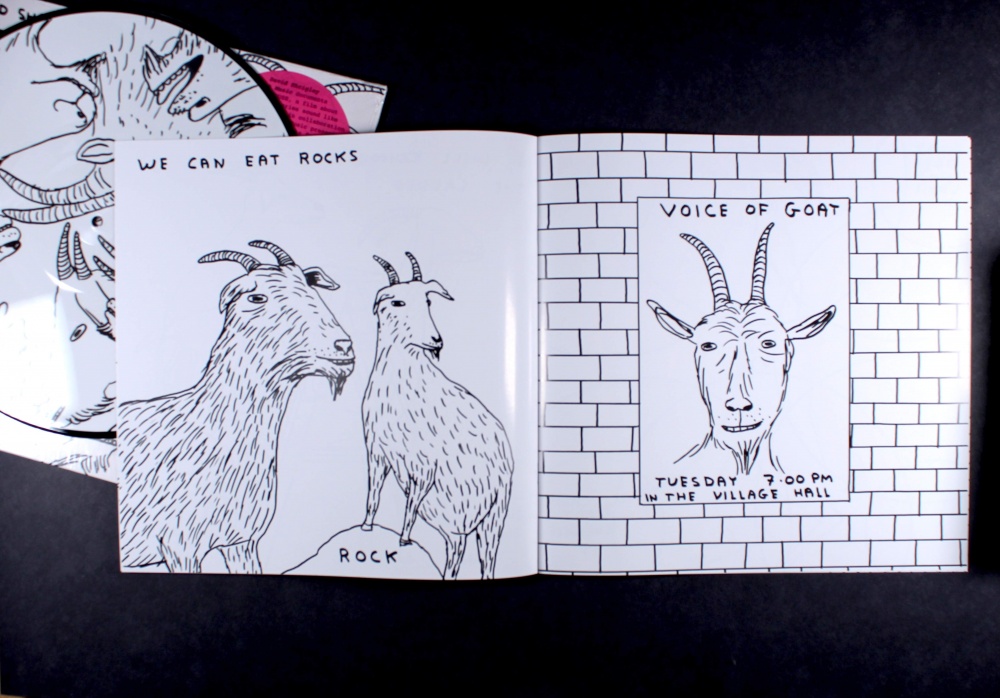 WE CAN EAT ROCKS
ROCK
VOICE OF GOAT
TUESDAY 7.00 PM
IN THE VILLAGE HALL
David Shrigley